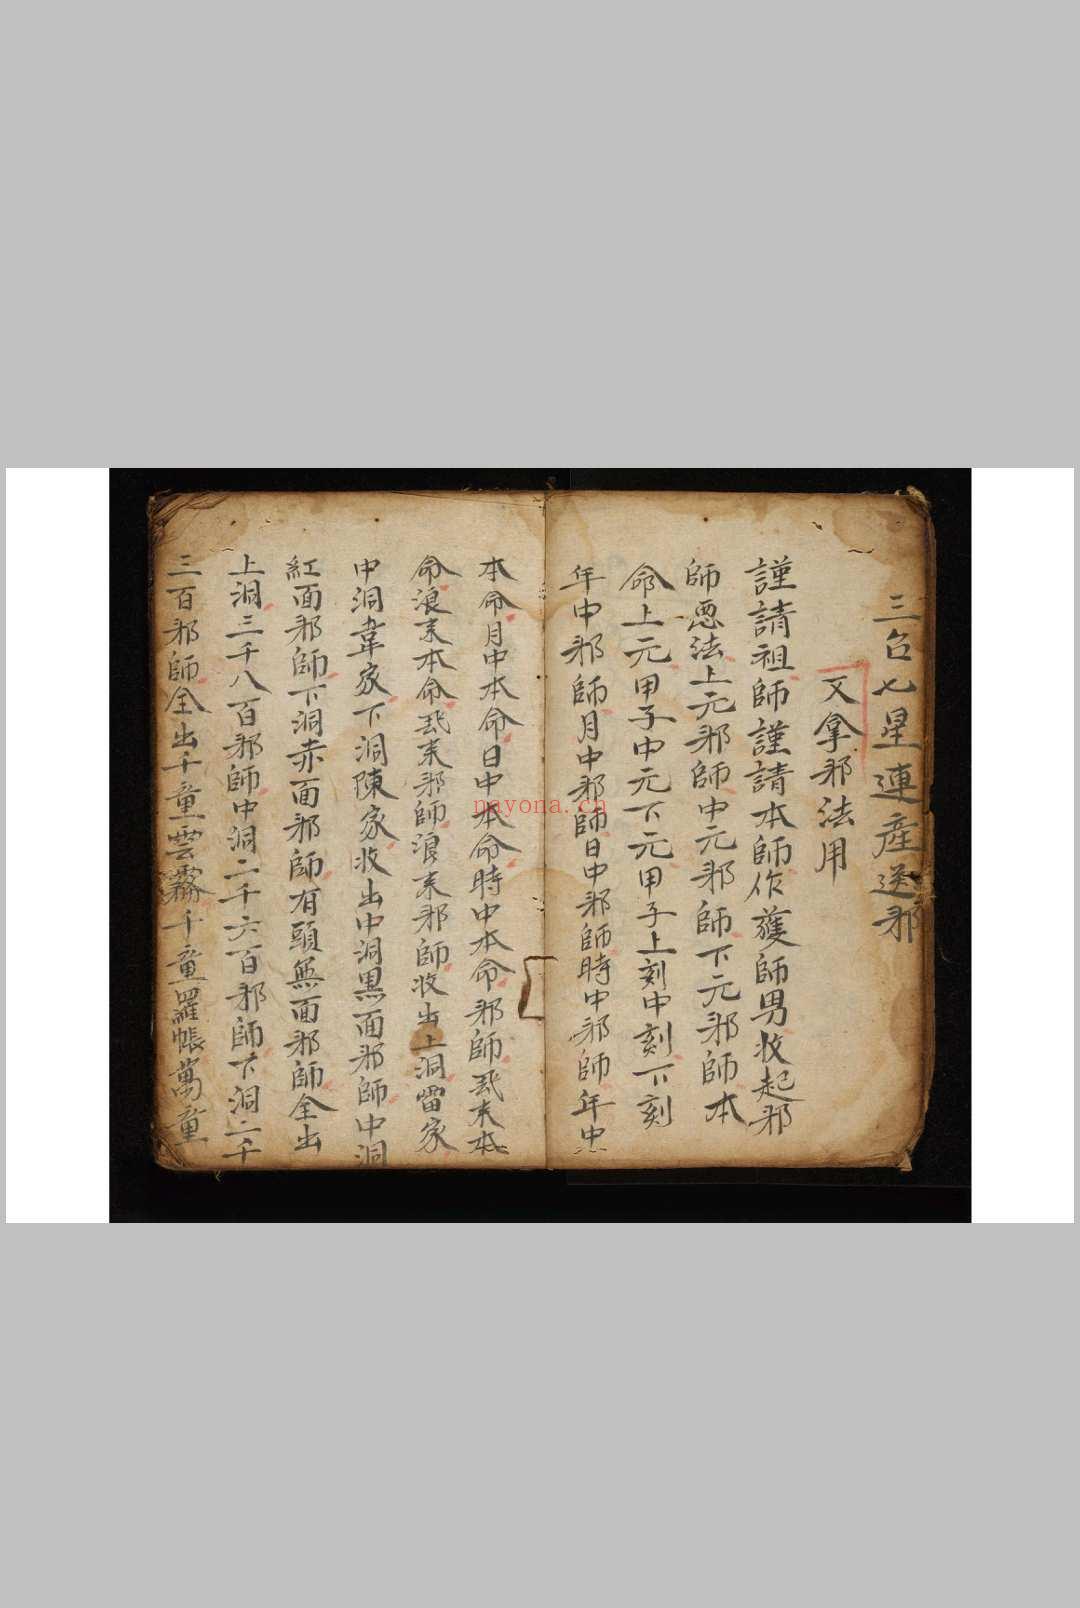 三台七星連産送邪
又拿邪法用
謹請祖師謹請本師作護師男收起邪
師惡法上元邪師中元邪師下元邪師本
命上元甲子中元下元甲子上刻中刻下刻
年中邪師月中邪師日中邪師時中邪師年中
本命月中本命日中本命時中本命邪師飛来本
命浪来本命飛来邪師浪来邪師收出上洞雷家
中洞韋家下洞陳家收出中洞黑面邪師中洞
紅面邪師下洞赤面邪師有頭無面邪師全出
上洞三千八百邪師中洞二千六百邪師下洞二千
三百邪師全出千童雲霧千童羅帳萬童
nayona.cn